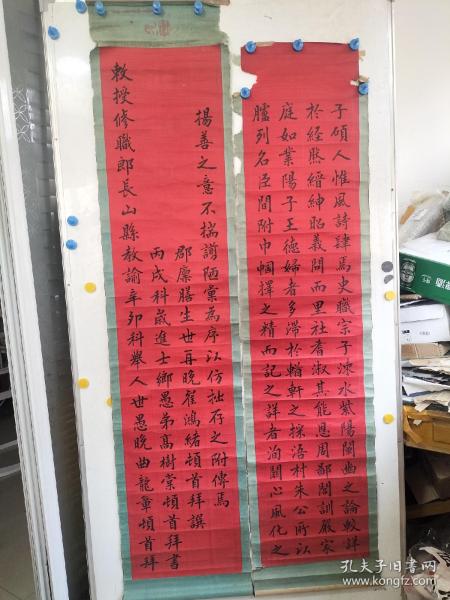 子碩人惟風詩肆焉史職宗子涑水紫陽閫曲之論較詳
於經然縉紳昭義問而里社耆淑其能恩周鄰閭訓嚴家
庭如業陽子王德婦者多滯於輶軒之採洛村朱公所以
臚列名臣間附巾幗擇之精而記之詳者洵關心風化之
揚善之意不揣謭陋彙為序以仿拙存之附傳焉
郡廩膳生世再晚崔鴻緒頓首拜譔
丙戌科歲進士鄉愚弟高樹棠頓首拜書
敕授修職郎長山縣教諭辛卯科舉人世愚晚曲龍章頓首拜
孔夫子旧书网
www.kongfz.com